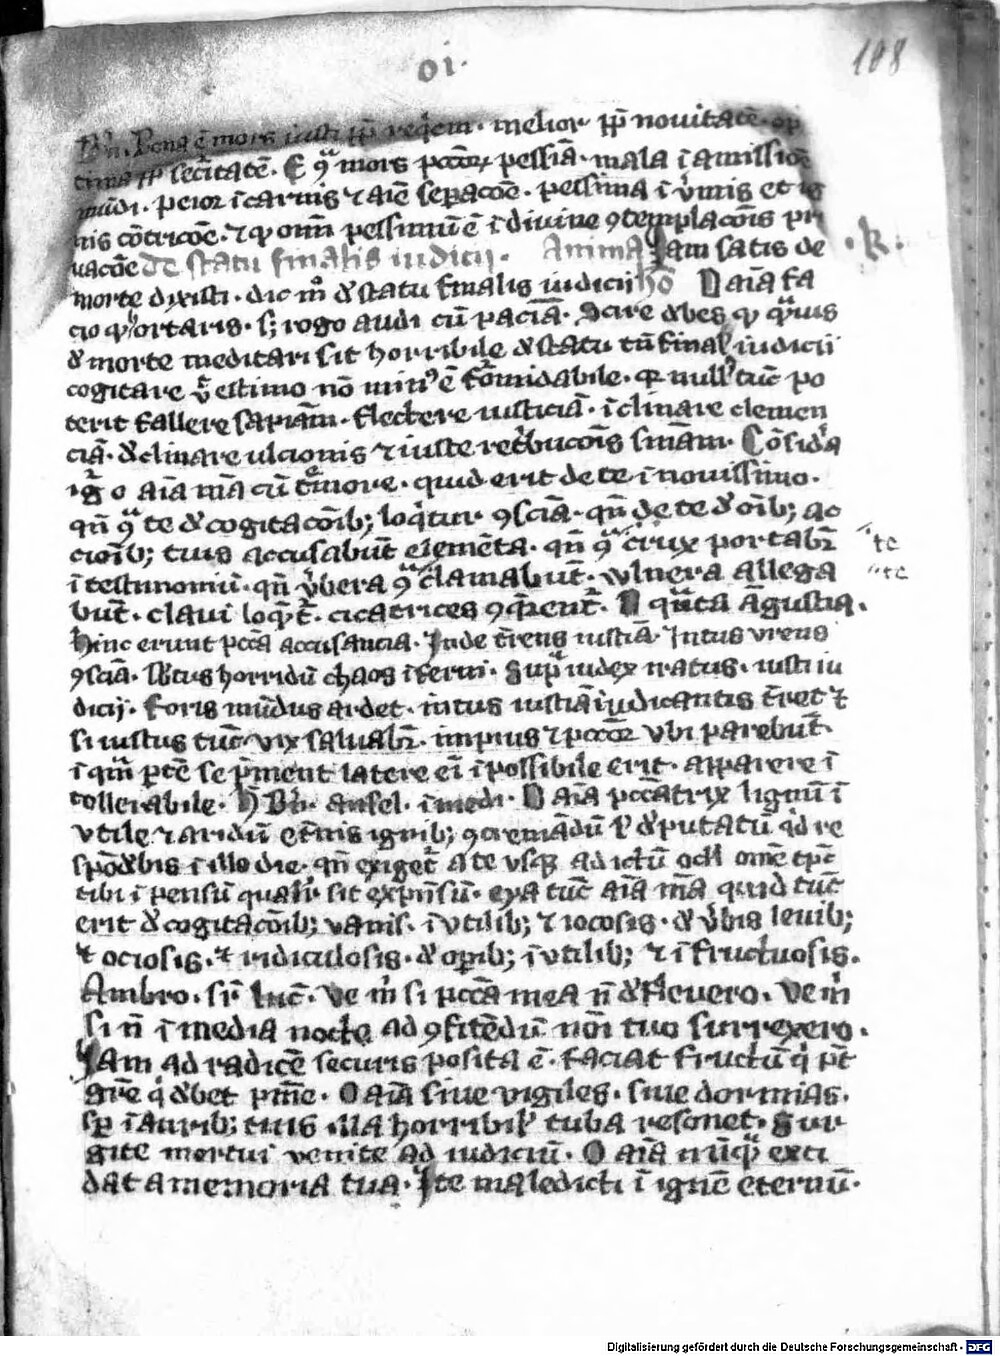 oi.
108
Bñ. Bona ē mors iusti ꝓpt̄ reqͥem. melior ꝓpt̄ novitatē. op
tima ꝓpt̄ secͥitatē. E ꝯͣ mors pccōꝝ pessīa. mala ī amissiōe
mūdi. peior ī carnis ⁊ aīe sepacōe. pessima ī vͥmis et ig
nis cōtricōe. ⁊ qͥ om̄ pessimū ē ī divine ꝯtemplacōis pri
vacōe de statu finalis iudicii. Anima Jam satis de
morte dixisti. dic mͥ de statu finalis iudicii hō O aīa fa
cio qͥ ortaris. sꝫ rogo audi cū paciā. Scire debes qͥ qͣuis
de morte meditari sit horribile de statu tn̄ final iudicii
cogitare vt estimo nō minꝰ ē formidabile. qꝛ nullꝰ tūc po
terit fallere sapiām. flectere iusticiā. īclinare clemen
ciā. declinare ulcionis ⁊ iuste retbucōis sniam. Cōsidͣa
igͥ o aīa mā cū tͥmore. quid erit de te ī novissimo.
qn̄ ꝯͣ te de cogitacōibꝫ loqͥtur ꝯsciā. qn̄ de te de oībꝫ ac
cioībꝫ tuis accusabūt elemēta. qn̄ ꝯͣ crux portabr̄ te
ī testimoniū. qn̄ vͥbera ꝯͣ clamabūt. vulnera allega te
būt. clavi loqͥt. cicatrices ꝯqͥrent. O qͣnta āgustia.
Hinc erunt pccā accusancia. Inde tͥrens iustiā. Intus urens
ꝯsciā. Subtus horridū chaos īferni. Supͣ iudex iratus. iusti iu
dicii. foris mūdus ardet. intus iustiā iudicantis tͥret ⁊
si iustus tūc vix salvabr̄. impius ⁊ pccōr ubi parebūt.
ī quā ptē se pͥment latere eī īpossibile erit. apparere ī
tollerabile. H Bn̄. ansel. ī medi. O aīa pccātrix lignū ī
utile ⁊ aridū et̄nis ignibꝫ ꝯcremādū ⁊ deputatū qͥd re
spōdebis ī illo die. qn̄ exiget̄ a te usqꝫ ad ictū ocli ōme tp̄s
tibi īpensū qualiṙ sit expēsū. eya tūc aīa mā quid tūc
erit de cogitacōibꝫ vanis. īutilibꝫ ⁊ iocosis. de vͥbis levibꝫ
⁊ ociosis. ⁊ ridiculosis. de opibꝫ īutilibꝫ ⁊ īfructuosis.
Ambro. sr̄ luc̄. Ve mͥ si pccā mea n̄ deflevero. Ve mͥ
si n̄ ī media nocte ad ꝯfitēdū nōi tuo surrexero.
Jam ad radicē securis posita ē. faciat fructū qͥ pt̄
agr̄e qͥ debet pnīe. O aīa sive vigiles. sive dormias.
sꝑ ī auribꝫ tuis illa horribilꝭ tuba resonet. Sur
gite mortui venite ad iudiciū. O aīa nūqͣ exci
dat a memoria tua. Ite maledicti ī ignē eternū.
.R.
Digitalisierung gefördert durch die Deutsche Forschungsgemeinschaft - DFG